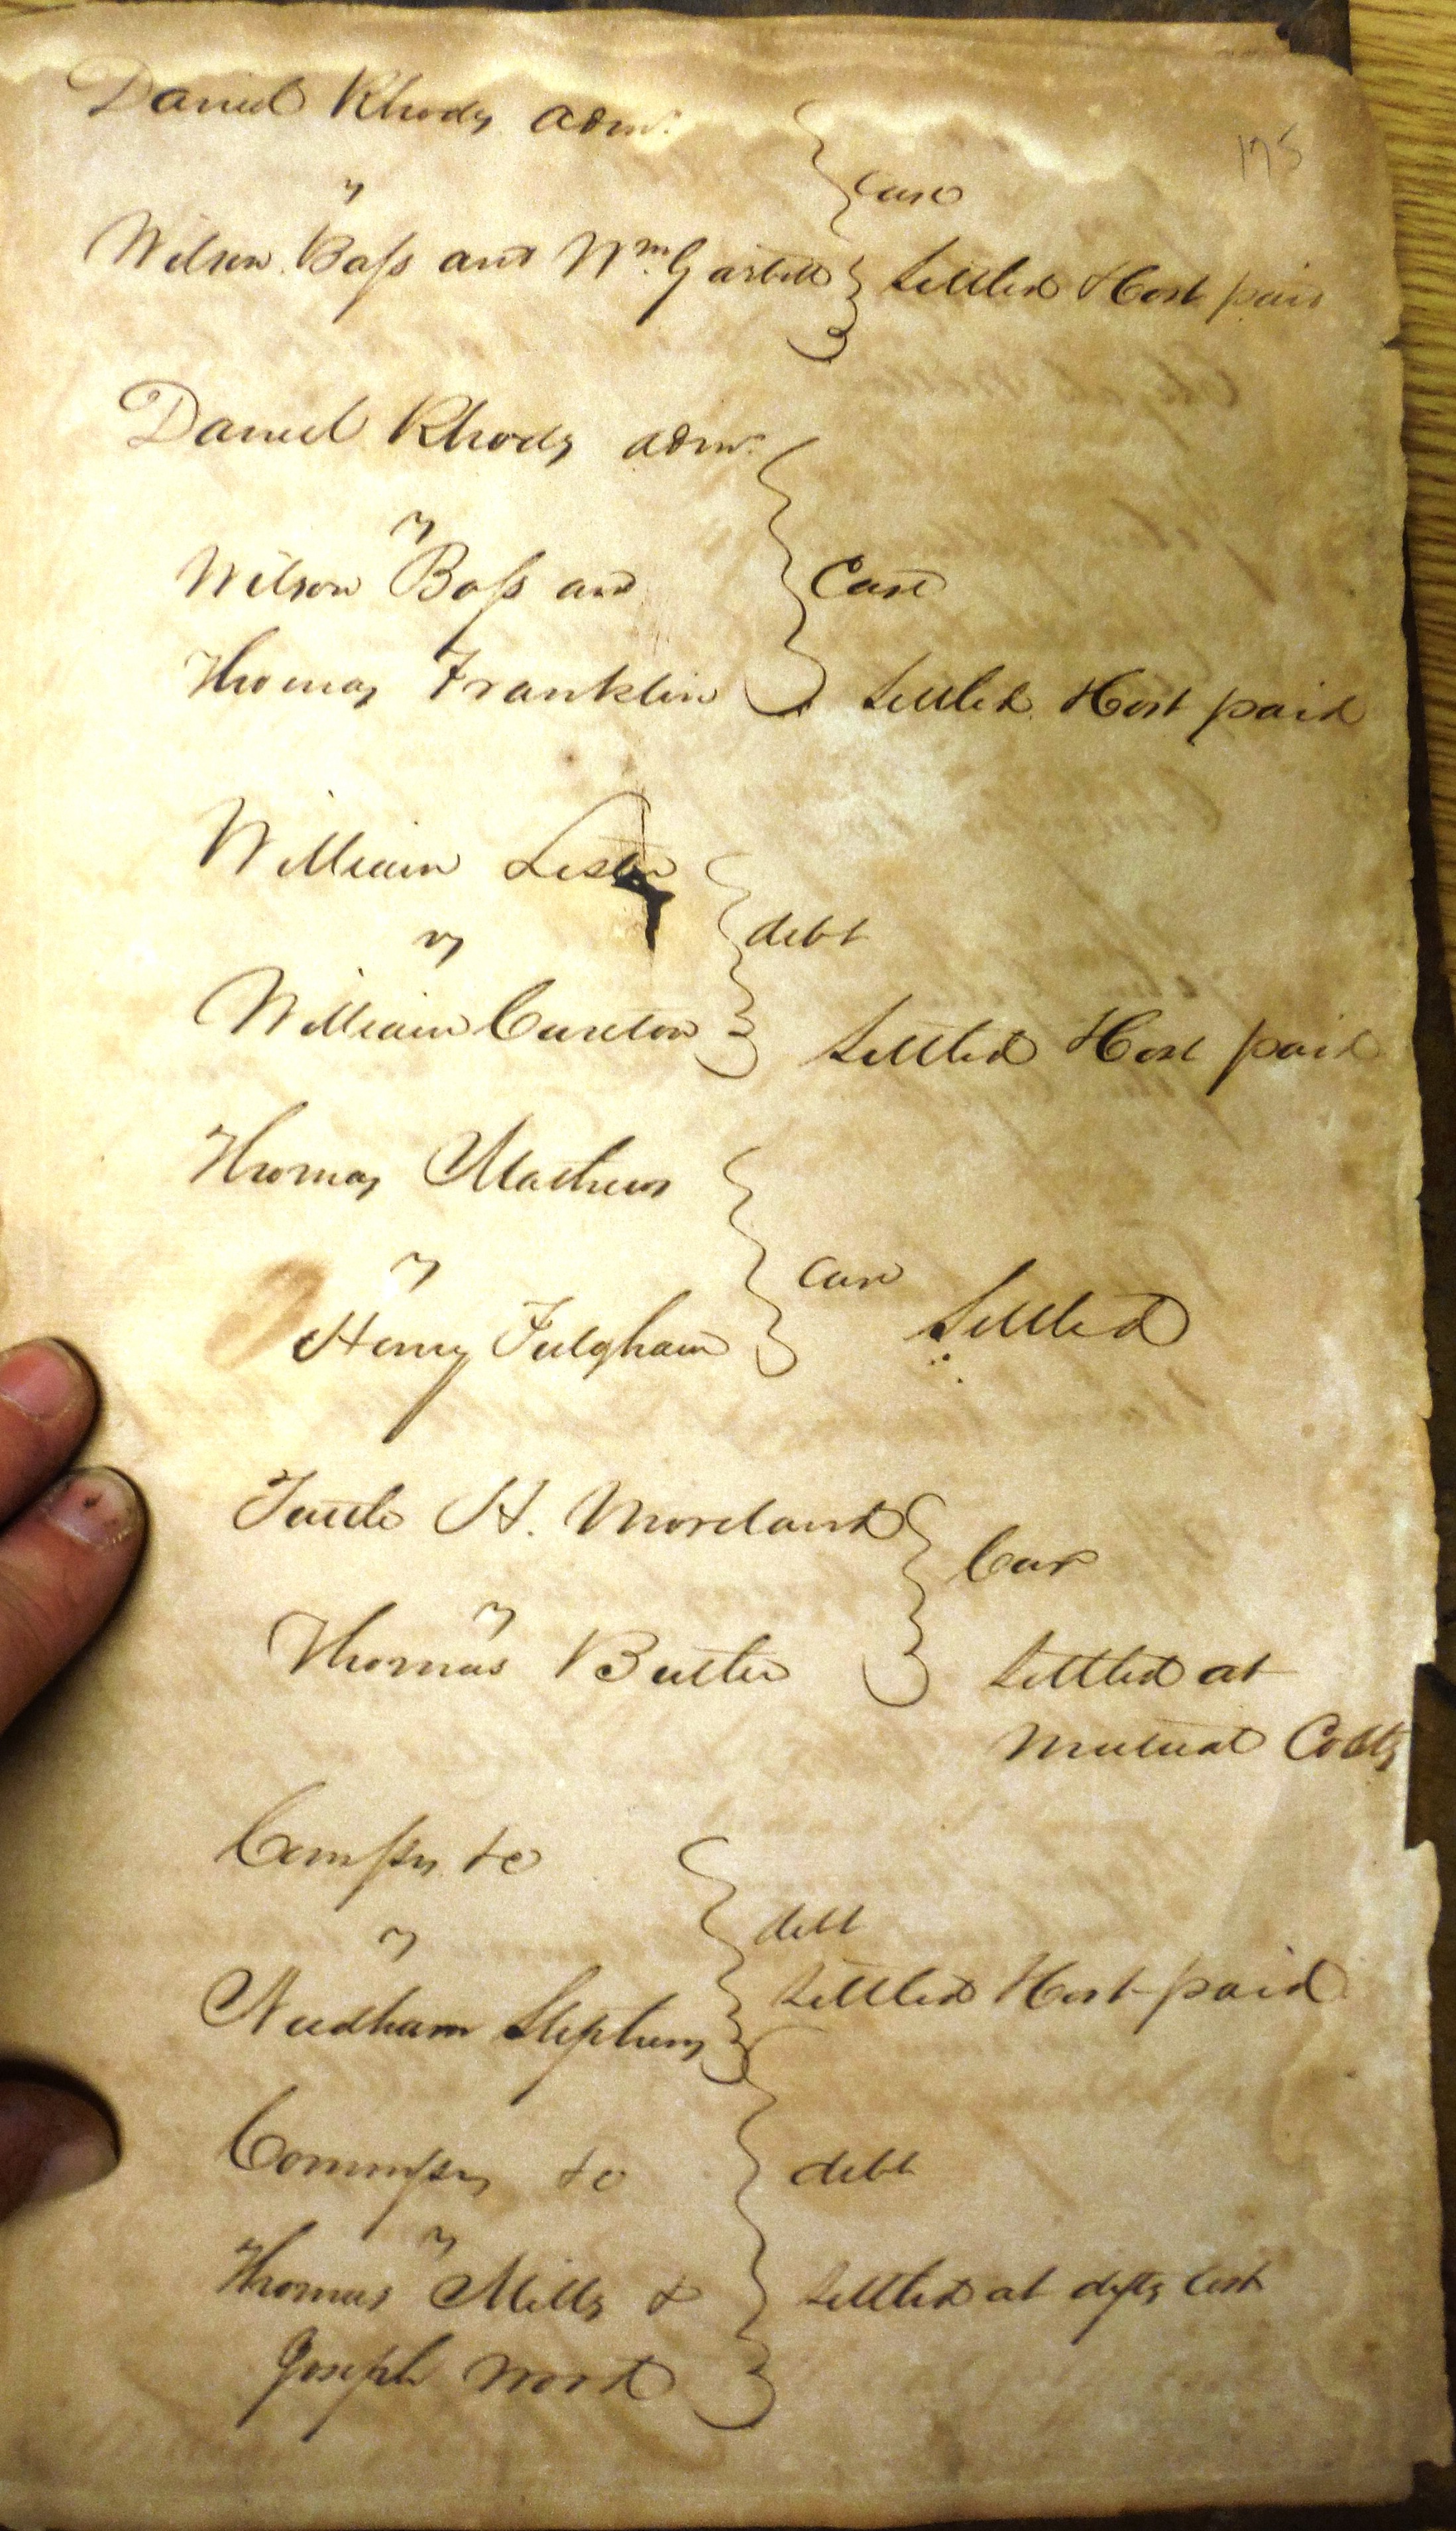 175
Daniel Rhods admr.
vs
Wilson Bass and Wm. Garbett
Case
Settled & Cost paid
Daniel Rhods admr.
vs
Wilson Bass and
Thomas Franklin
Case
Settled & Cost paid
William Lester
vs
William Cureton
debt
Settled & Cost paid
Thomas Mathews
vs
Henry Fulgham
case
Settled
Tuttle H. Moreland
vs
Thomas Butler
Case
Settled at
mutual Costs
&c
vs
Needham Stephens
debt
Settled & Cost paid
&c
vs
Thomas Mills &
Joseph Word
debt
Settled at defts Cost